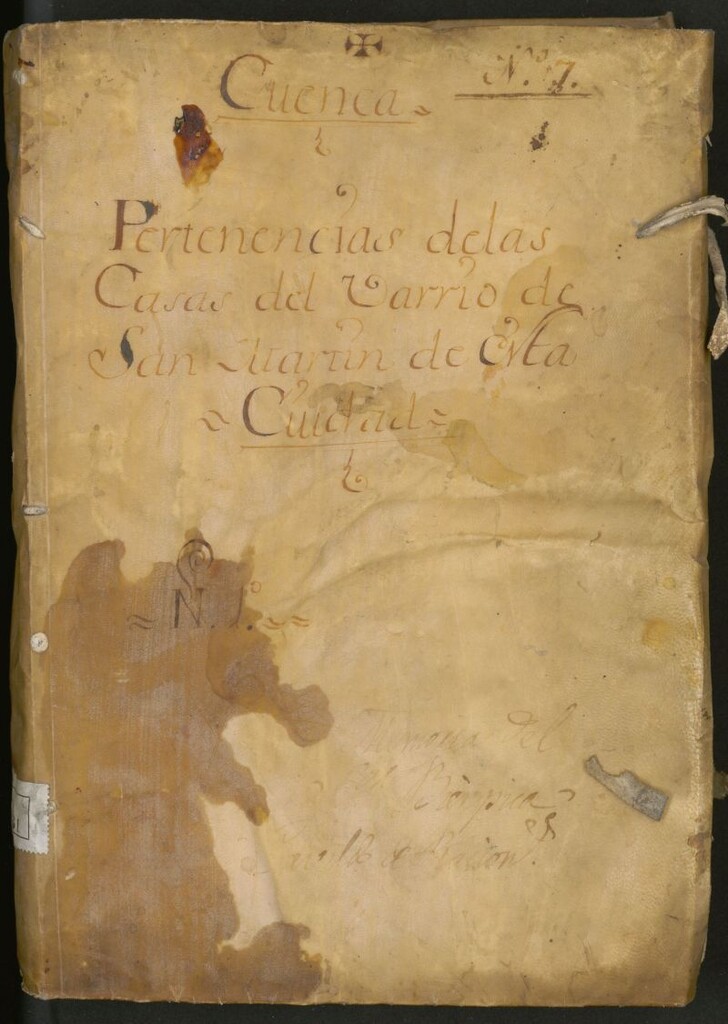 ✠
Cuenca
N.º 7.
Pertenencias delas
Casas del Varrio de
San Martin de esta
Ciudad
N. 1.º
Memoria del